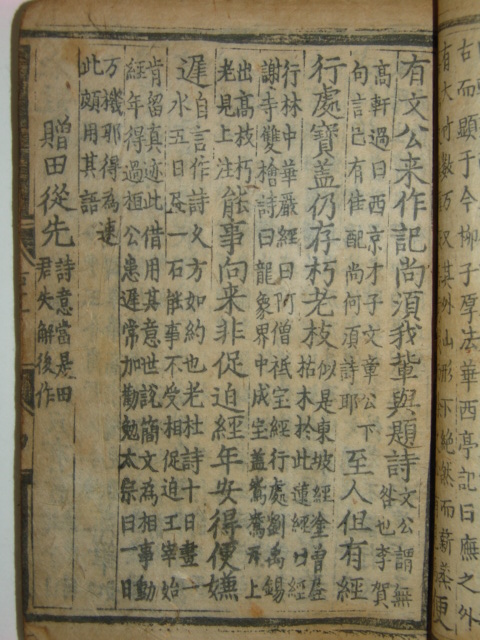 古而顯于今柳子厚法華西亭記曰廡之外
有大竹數万又其外山形下絶然而薪蒸更
有文公来作記尚須我輩與題詩
文公謂無
咎也李賀
高軒過曰西京才子文章公下
句言已有佳配尚何須詩耶
至人但有經
行處寶盖仍存朽老枝
似是東坡經塗曽居
枯木於此蓮經口經
行林中華嚴經曰阿僧祗宝經行處劉禹錫
謝寺雙檜詩曰龍象界中成宝盖鴛鴦瓦上
出高枝朽
老見上注
能事向来非促迫經年安得便嫌
遲
自言作詩久方如約也老杜詩十日畫一
水五日畫一石能事不受相促迫王宰始
肯留真迹此借用其意世說簡文為相事動
經年得過桓公患遲常加勸勉太祭曰一日
万機那得為速
此頗用其語
贈田從先
詩意當是田
君失解後作